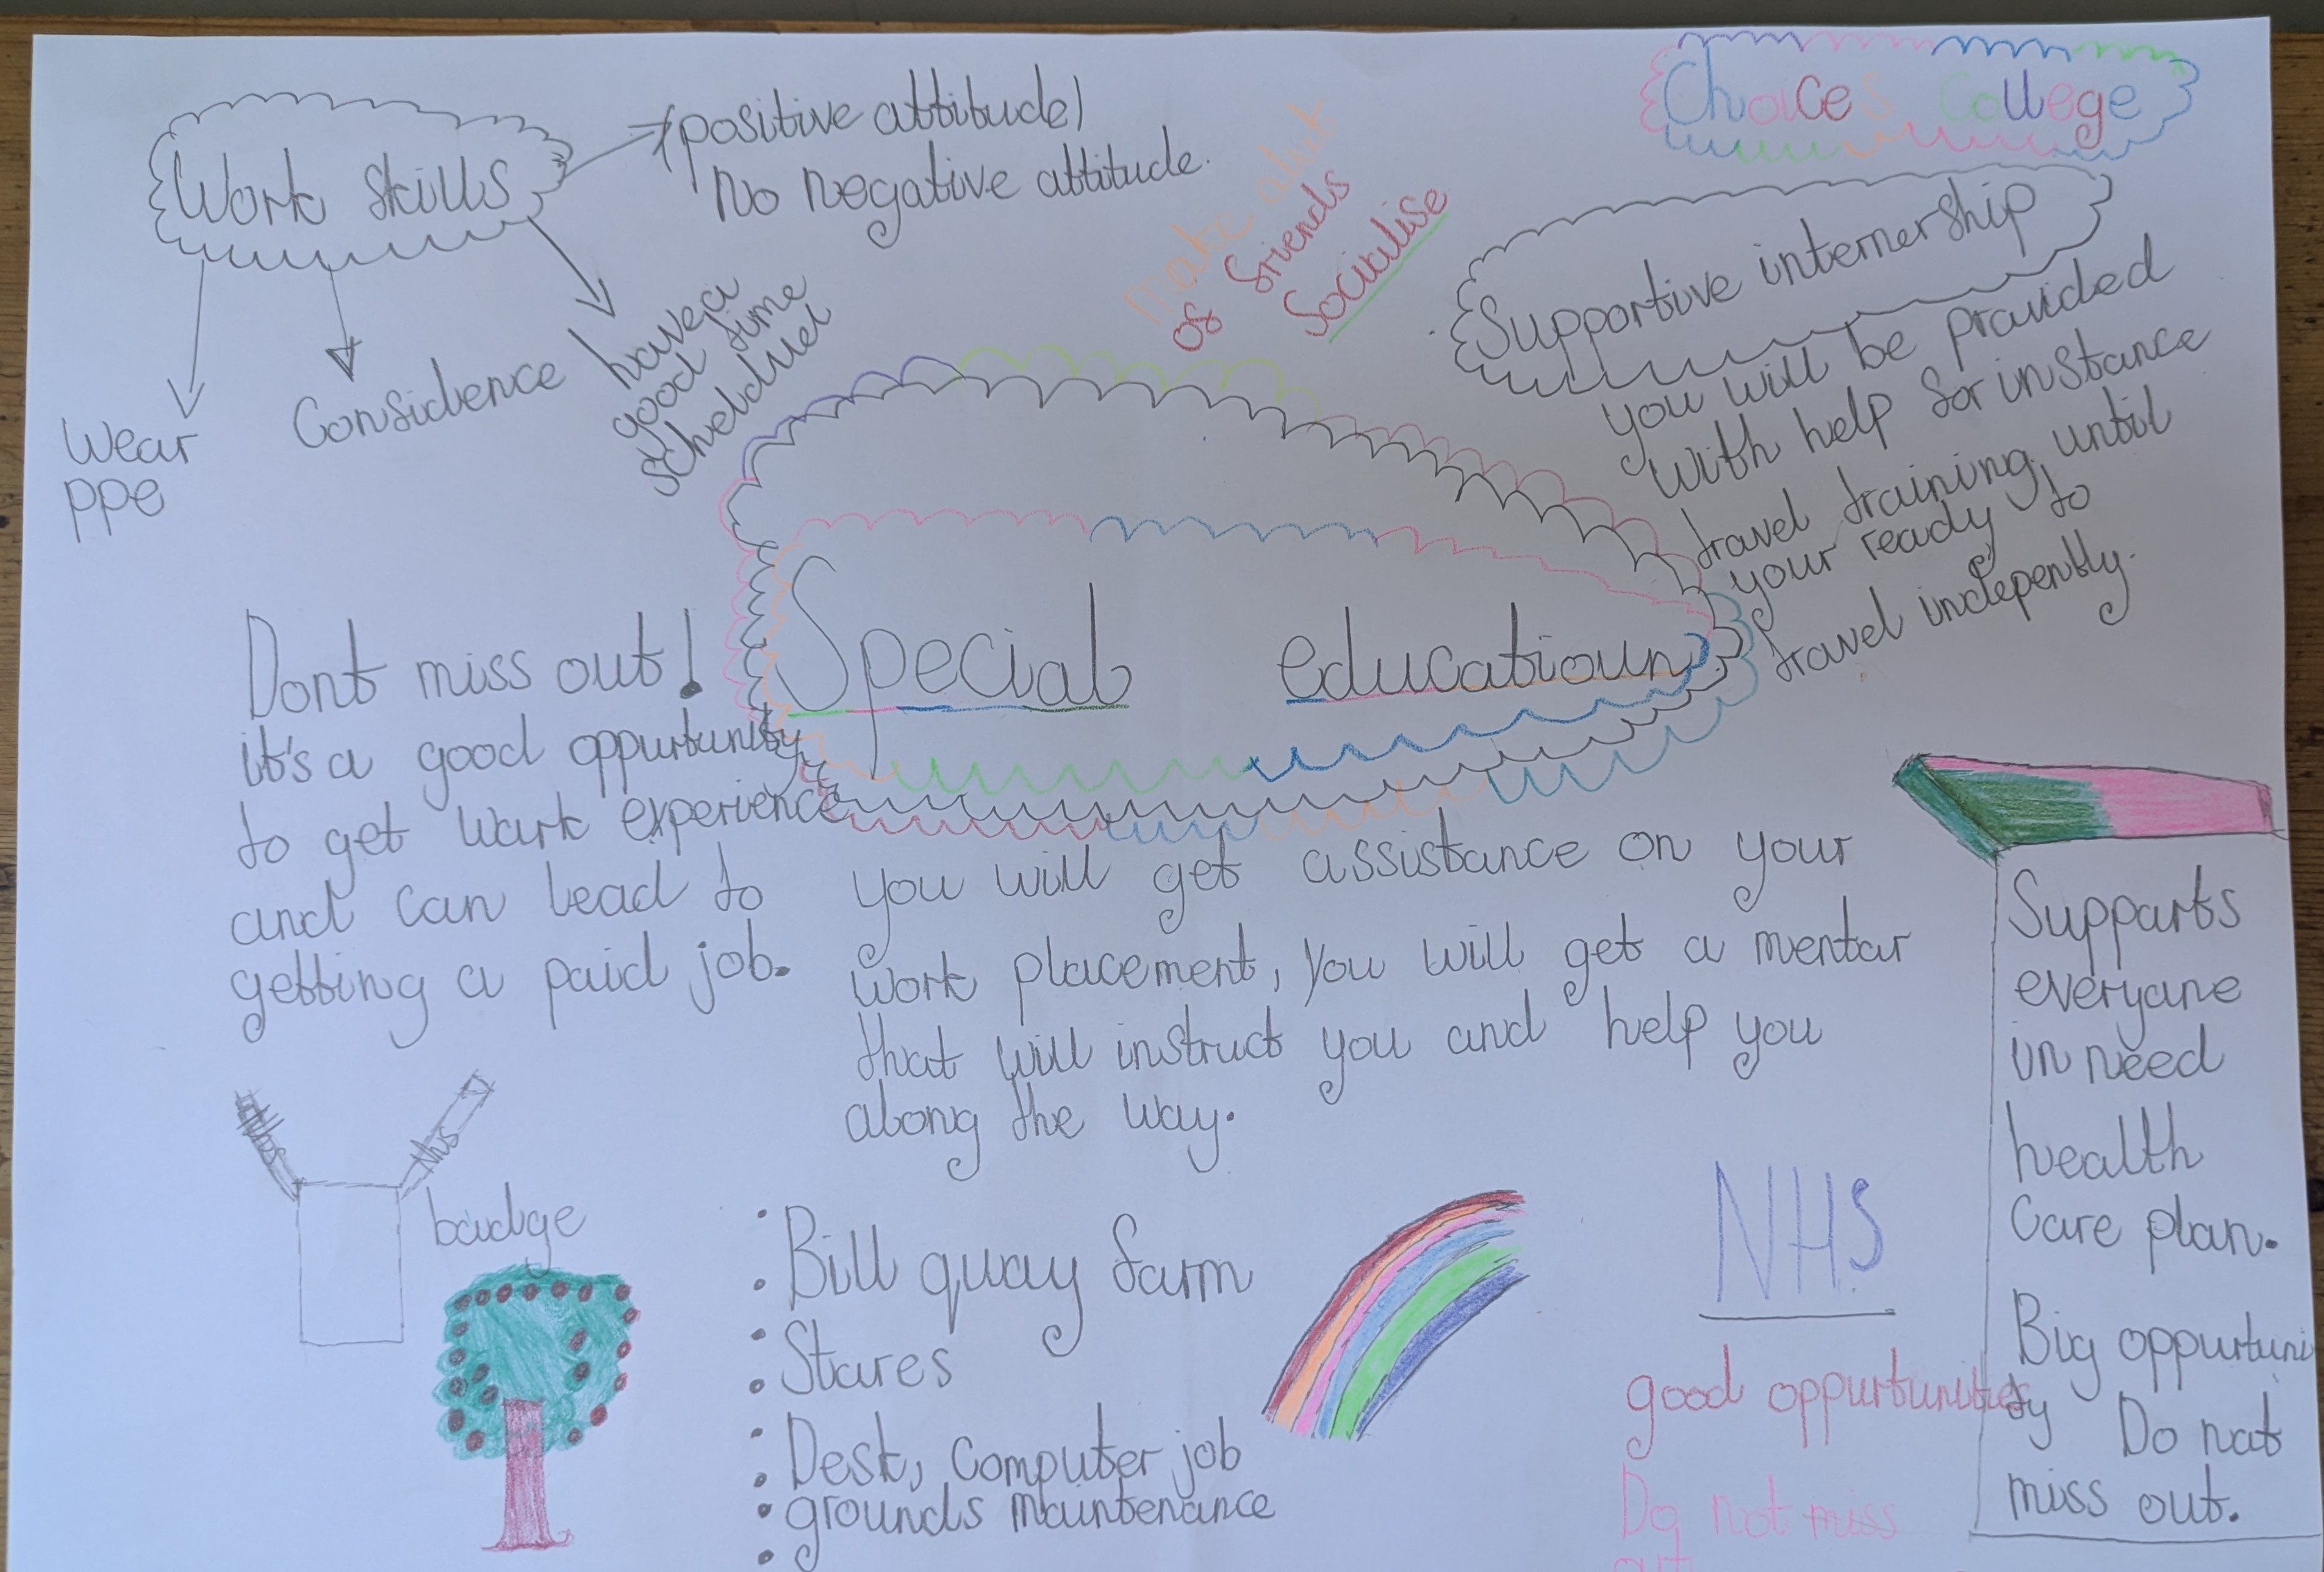 Choices College
Work skills
(positive attitude)
no negative attitude.
Wear
ppe
Confidence
have a
good time
scheldeuel
make alot
of friends
Socitilise
Supportive internership
you will be provided
with help for instance
travel training, until
your ready to
travel indepently.
Special educatioun
Dont miss out!
it's a good oppurtunity
to get work experience
and can lead to
getting a paid job.
you will get assistance on your
work placement, you will get a mentor
that will instruct you and help you
along the way.
Supports
everyone
in need
health
Care plan.
Big oppurtuni
ty Do not
miss out.
Nhs
Nhs
badge
• Bill quay farm
• Stores
• Desk, Computer job
• grounds maintenance
NHS
good oppurtunities
Do not miss
out